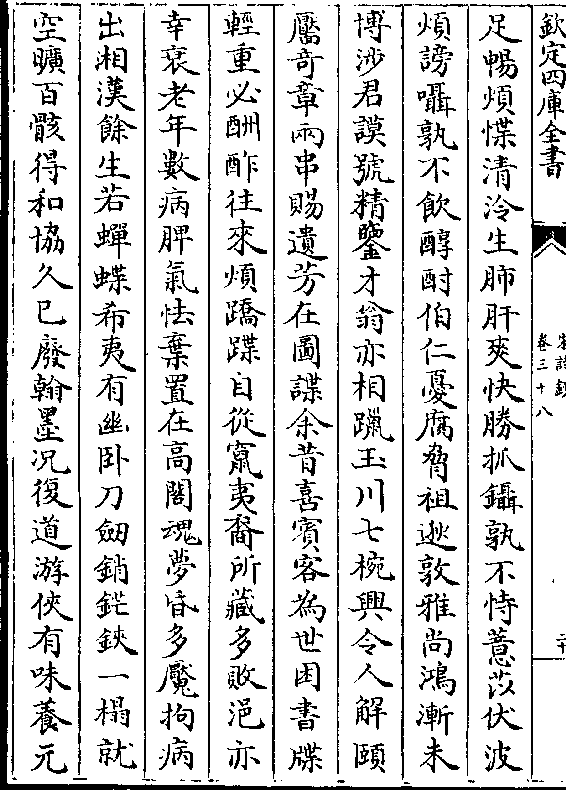 欽定四庫全書
卷三十八
足暢煩惵清泠生肺肝爽快勝抓鑷孰不恃薏苡伏波
煩謗囁孰不飲醇酎伯仁憂腐脅祖逖敦雅尚鴻漸未
博涉君謨號精鑒才翁亦相躐玉川七椀興令人解頤
靨奇章兩串賜遺芳在圖諜余昔喜賓客為世困書牒
輕重必酬酢往來煩蹻蹀自從竄夷裔所藏多敗浥亦
幸衰老年數病脾氣怯棄置在高閣魂夢昏多魘拘病
出湘漢餘生若蟬蝶希夷有幽卧刀劒銷鋩鋏一榻就
空曠百骸得和協久已廢翰墨况復道游俠有味養元